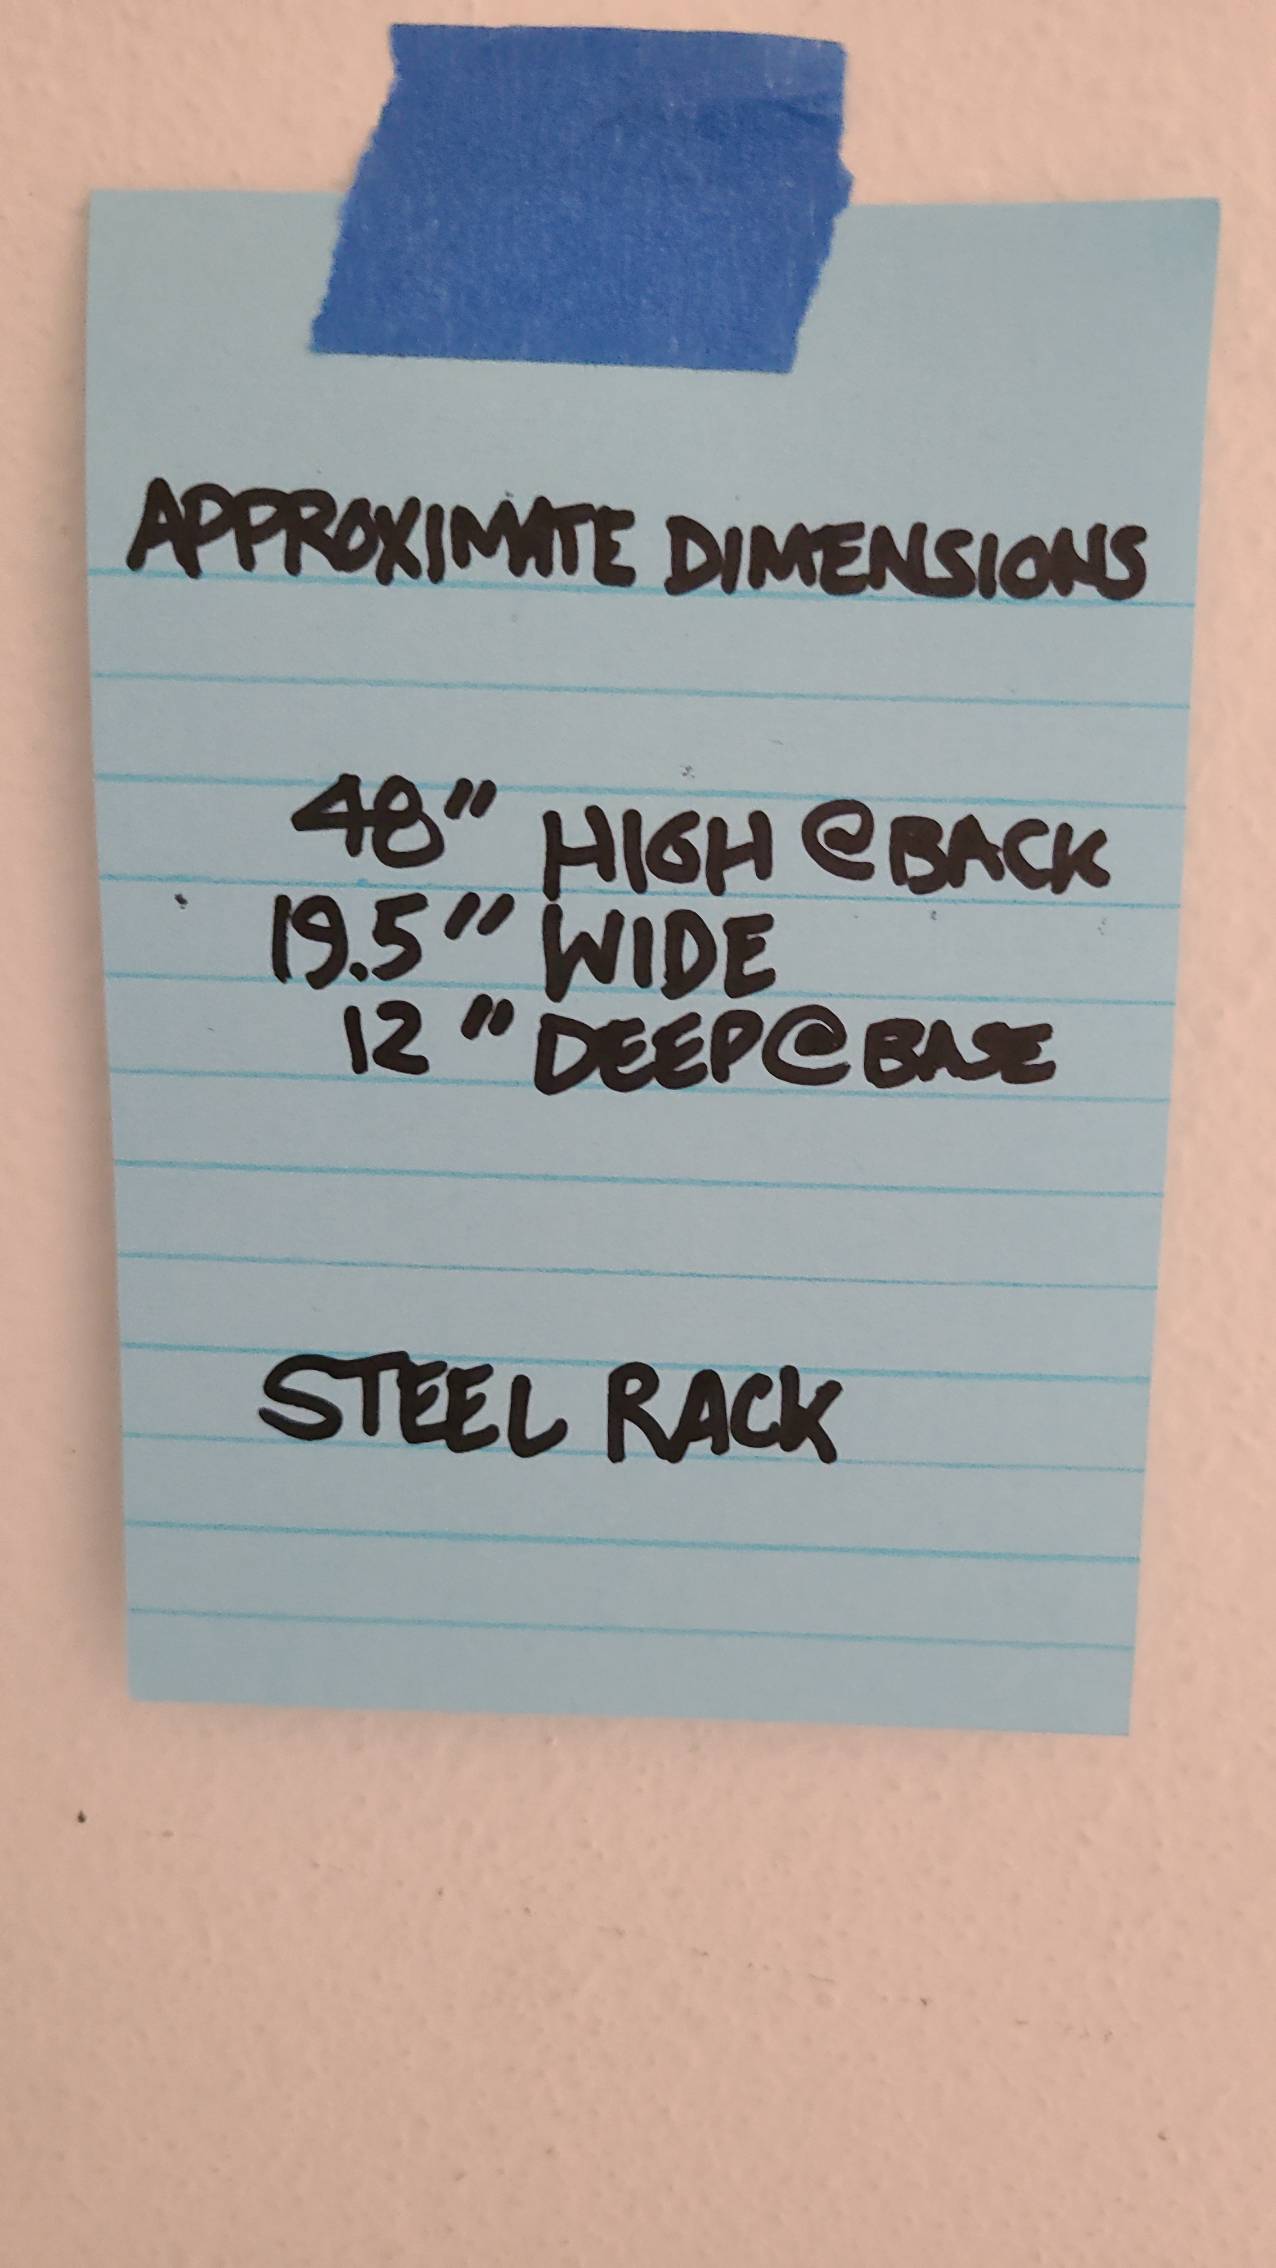 APPROXIMATE DIMENSIONS
48" HIGH @ BACK
19.5" WIDE
12" DEEP @ BASE
STEEL RACK